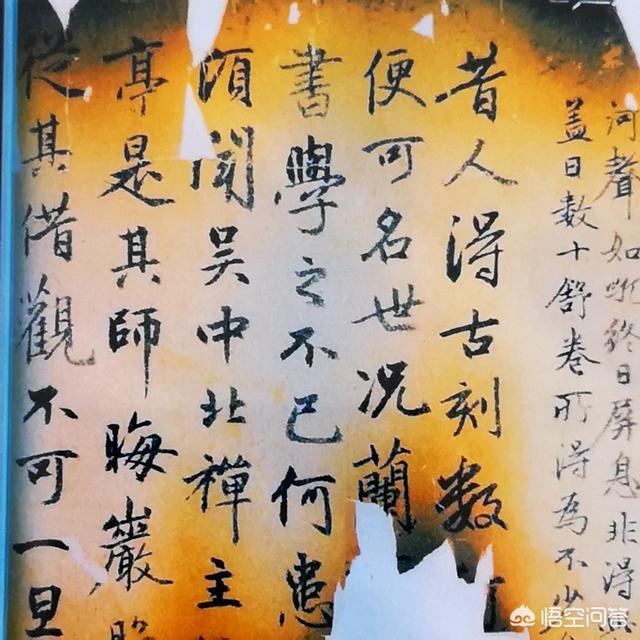 河聲如吼終日屏息非得
盖日數十舒卷所得為不少
昔人得古刻數
便可名世况蘭
書學之不已何患
頃聞吳中北禪主
亭是其師晦巖
從其借觀不可一旦
悟空问答